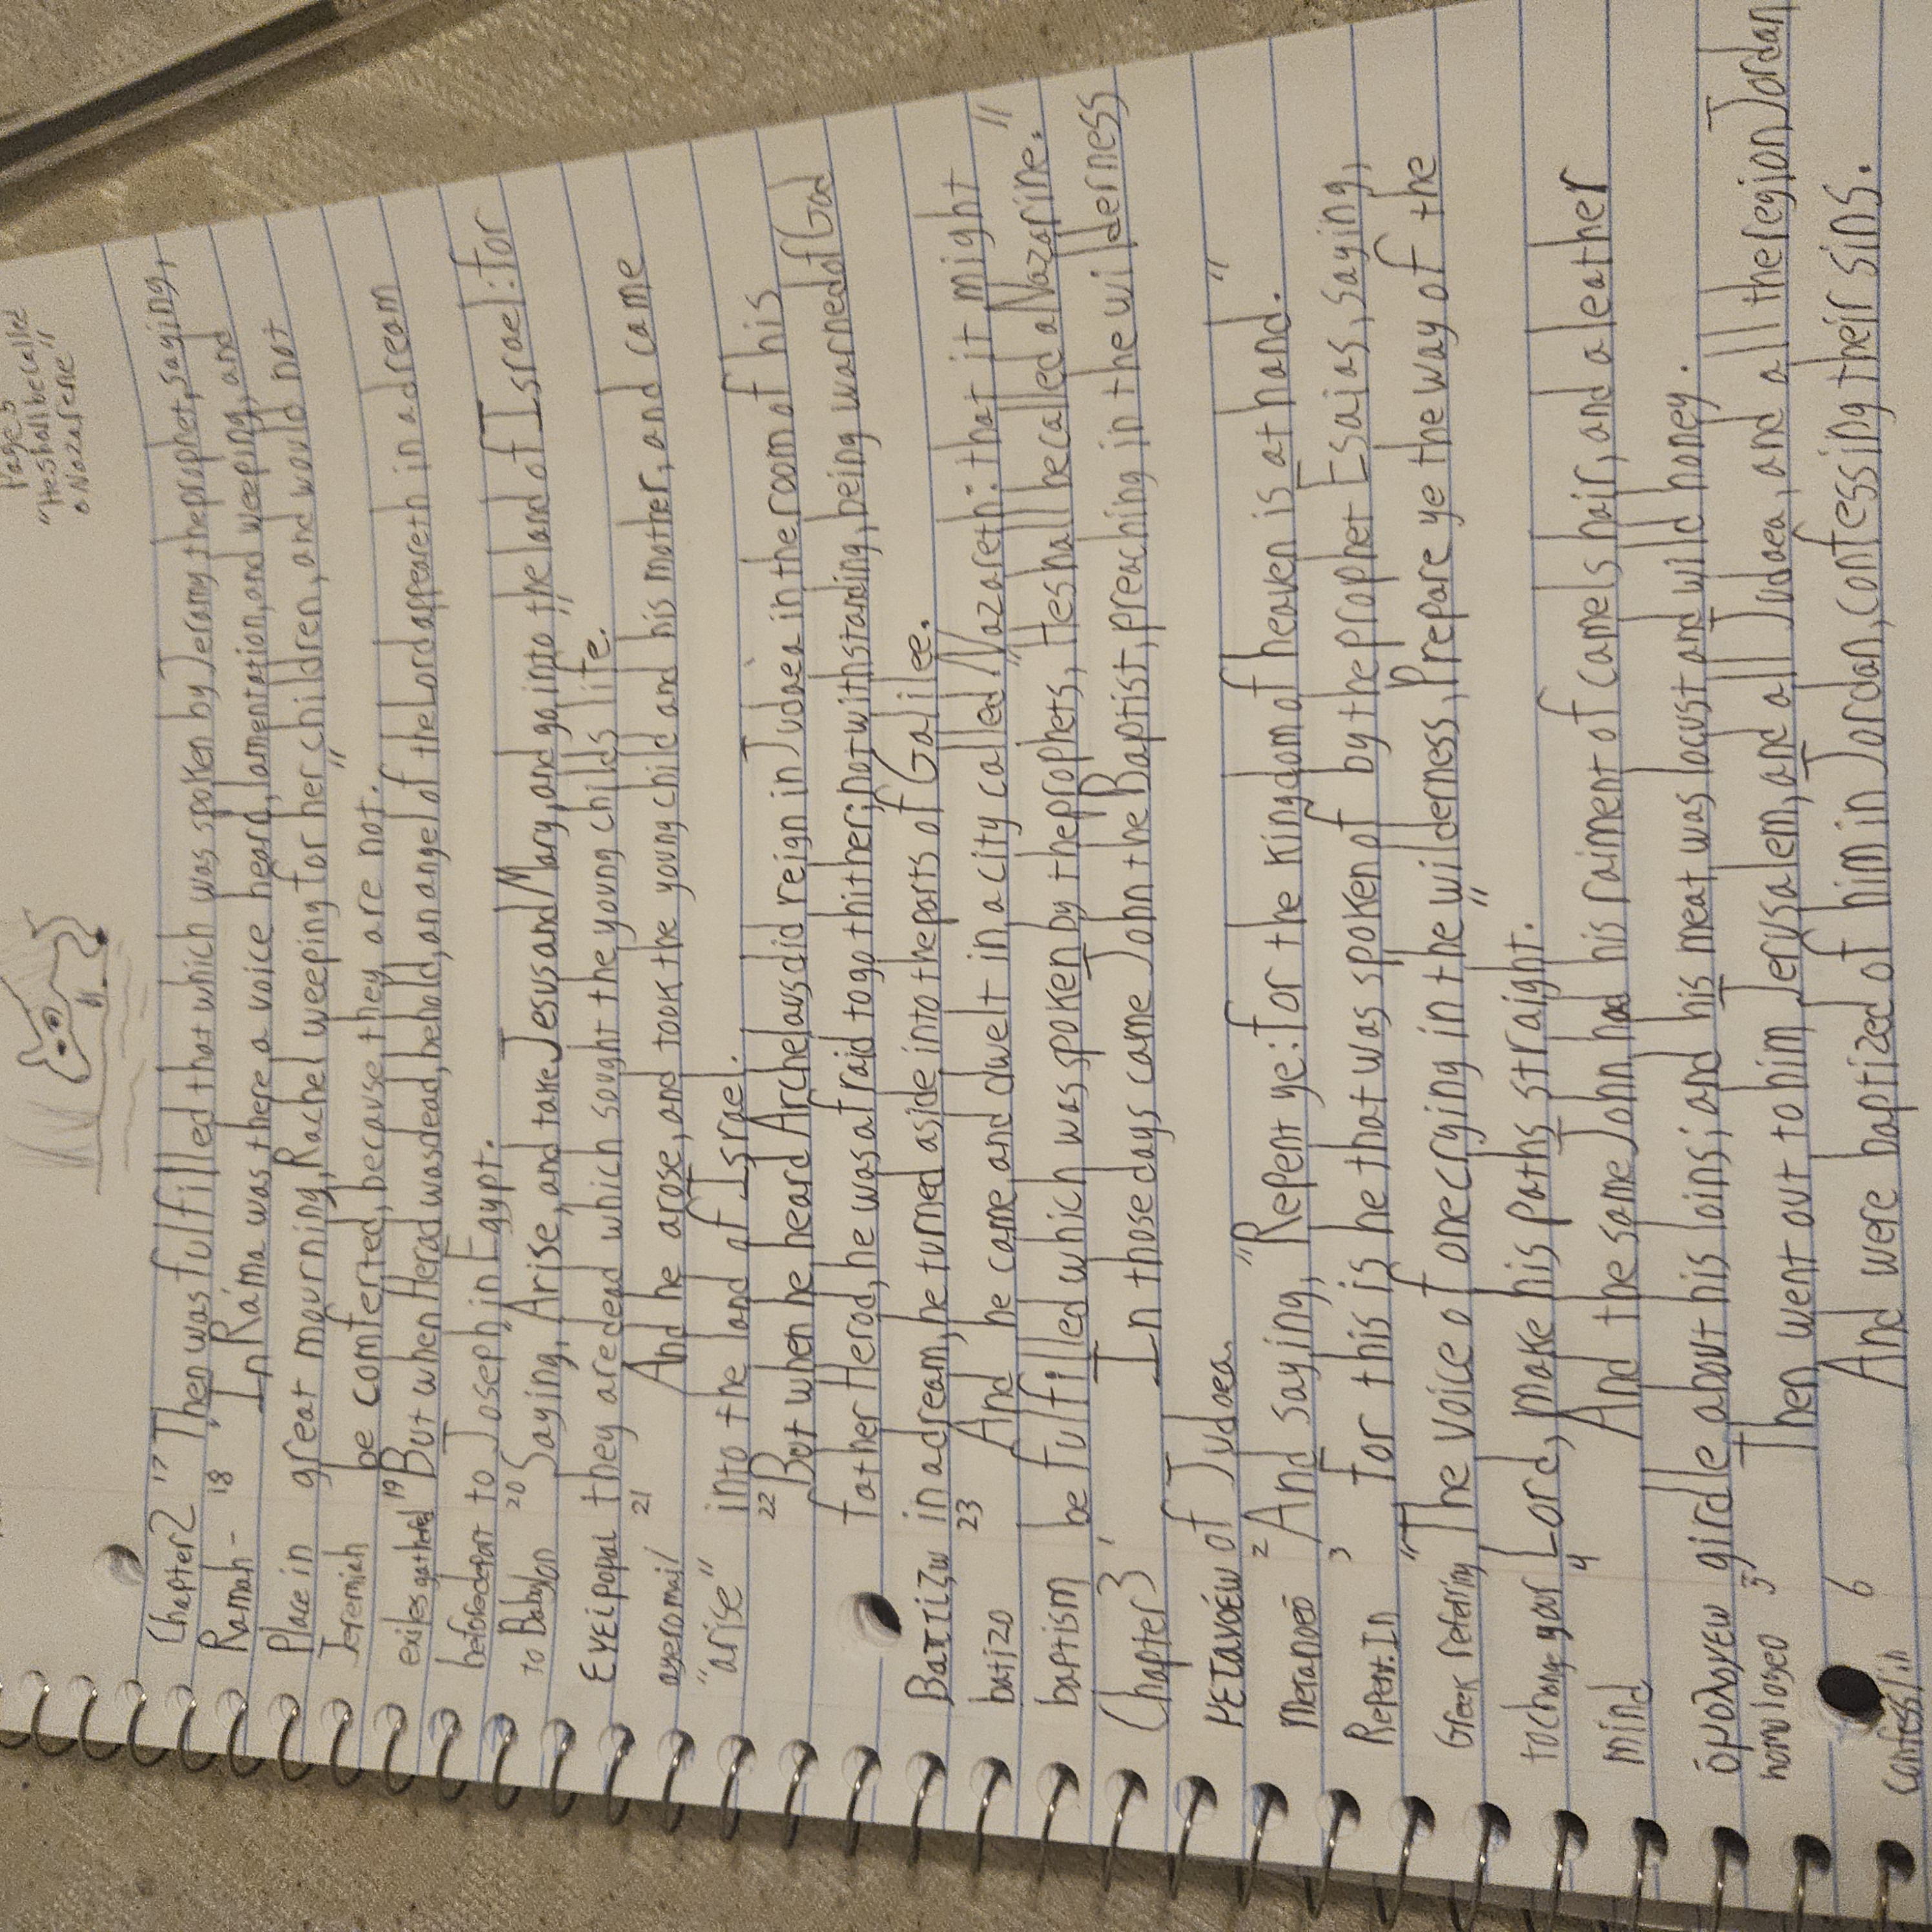 Page 5
"He shall be called
a Nazarene"
Chapter 2 17 Then was fulfilled that which was spoken by Jeramy the prophet, saying,
Ramah - 18 "In Rama was there a voice heard, lamentation, and weeping, and
Place in great mourning, Rachel weeping for her children, and would not
Jeremiah be comforted, because they are not."
exiles gathered 19 But when Herad was dead, behold, an angel of the Lord appeareth in a dream
before depart to Joseph in Egypt.
to Babylon 20 Saying, "Arise, and take Jesus and Mary, and go into the land of Israel: for
Eyeipopai they are dead which sought the young childs life."
ayeromai/ 21 And he arose, and took the young child and his mother, and came
"arise" into the land of Israel.
22 But when he heard Archelaus did reign in Judaea in the room of his
father Herod, he was afraid to go thither: notwithstanding, being warned of God
Βαπτιζω in a dream, he turned aside into the parts of Galilee.
batizo 23 And he came and dwelt in a city called Nazareth: that it might
baptism be fulfilled which was spoken by the prophets, "He shall be called a Nazarine."
Chapter 3 1 In those days came John the Baptist, preaching in the wilderness
μετανοέω of Judaea.
Metanoeō 2 And saying, "Repent ye: for the kingdom of heaven is at hand."
Repent. In 3 For this is he that was spoken of by the prophet Esaias, saying,
Greek refering "The voice of one crying in the wilderness, Prepare ye the way of the
to change your Lord, make his paths straight."
mind 4 And the same John had his raiment of camels hair, and a leather
girdle about his loins; and his meat was locust and wild honey.
ὁμολογεω 5 Then went out to him Jerusalem, and all Judaea, and all the region Jordan
homologeo
6 And were baptized of him in Jordan, confessing their sins.